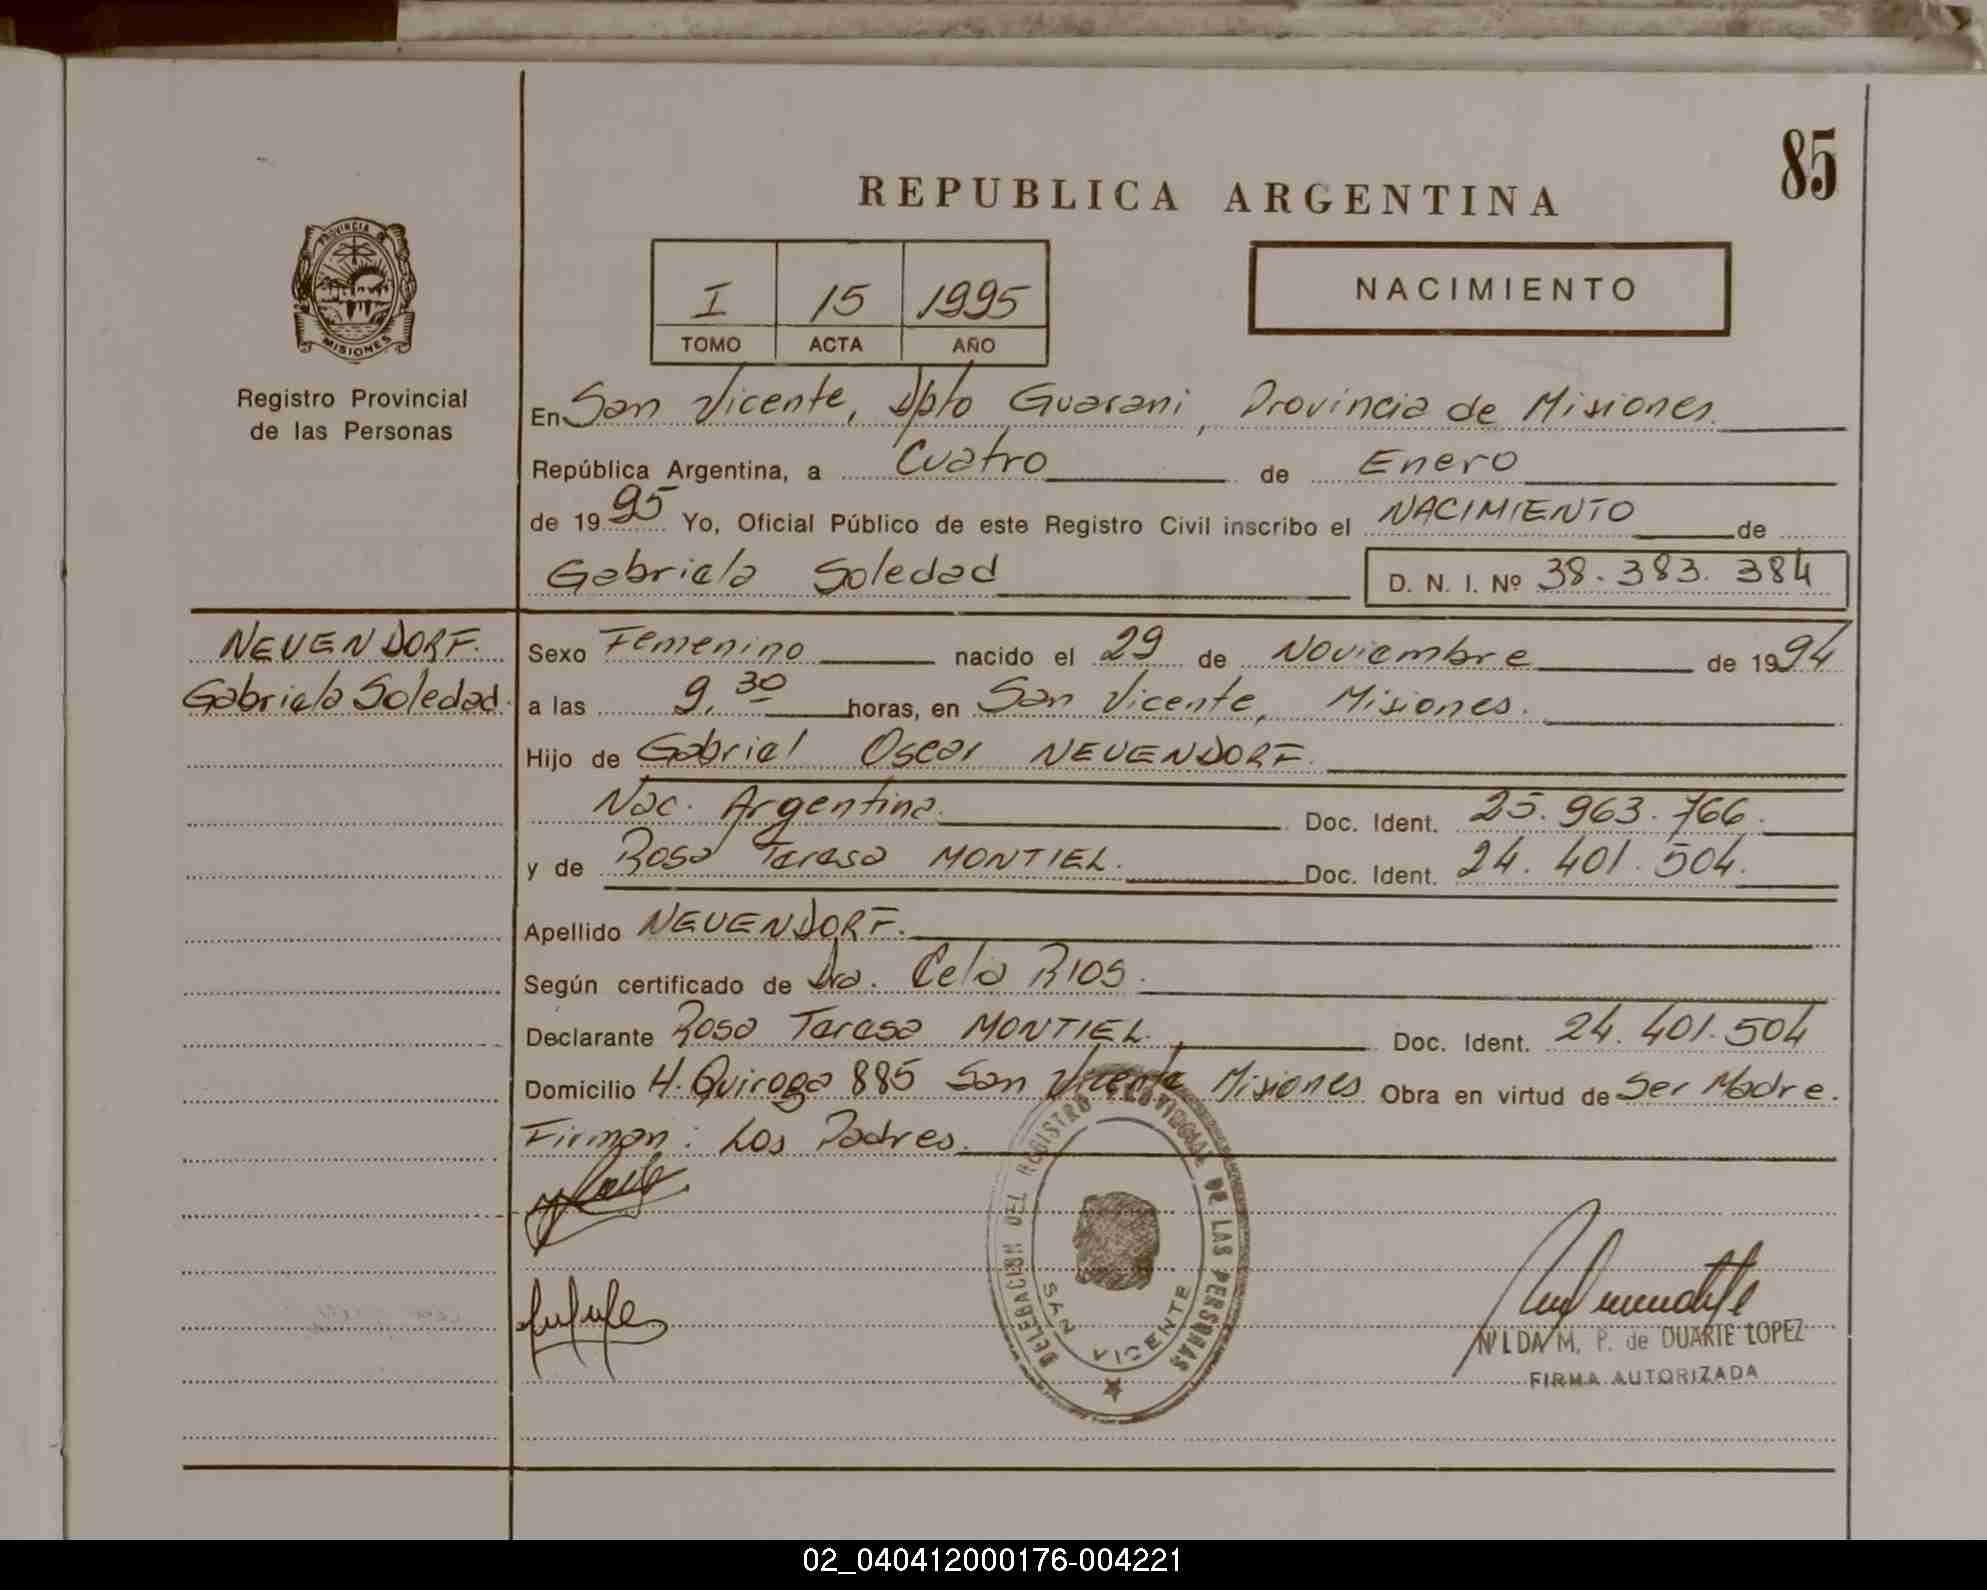 85
REPUBLICA ARGENTINA
PROVINCIA DE
MISIONES
I 15 1995
TOMO ACTA AÑO
NACIMIENTO
Registro Provincial
de las Personas
En San Vicente, Dpto Guarani, Provincia de Misiones.
República Argentina, a Cuatro de Enero
de 1995 Yo, Oficial Público de este Registro Civil inscribo el NACIMIENTO de
Gabriela Soledad D. N. I. Nº 38.383.384
NEUENDORF.
Gabriela Soledad.
Sexo Femenino nacido el 29 de Noviembre de 1994
a las 9,30 horas, en San Vicente, Misiones.
Hijo de Gabriel Oscar NEUENDORF.
Nac. Argentina. Doc. Ident. 25.963.766.
y de Rosa Teresa MONTIEL. Doc. Ident. 24.401.504.
Apellido NEUENDORF.
Según certificado de Dra. Celia RIOS.
Declarante Rosa Teresa MONTIEL. Doc. Ident. 24.401.504
Domicilio H. Quiroga 885 San Vicente Misiones Obra en virtud de Ser Madre.
Firman: Los Padres.
DELEGACION DEL REGISTRO PROVINCIAL DE LAS PERSONAS
SAN VICENTE
NILDA M. P. de DUARTE LOPEZ
FIRMA AUTORIZADA
02_040412000176-004221